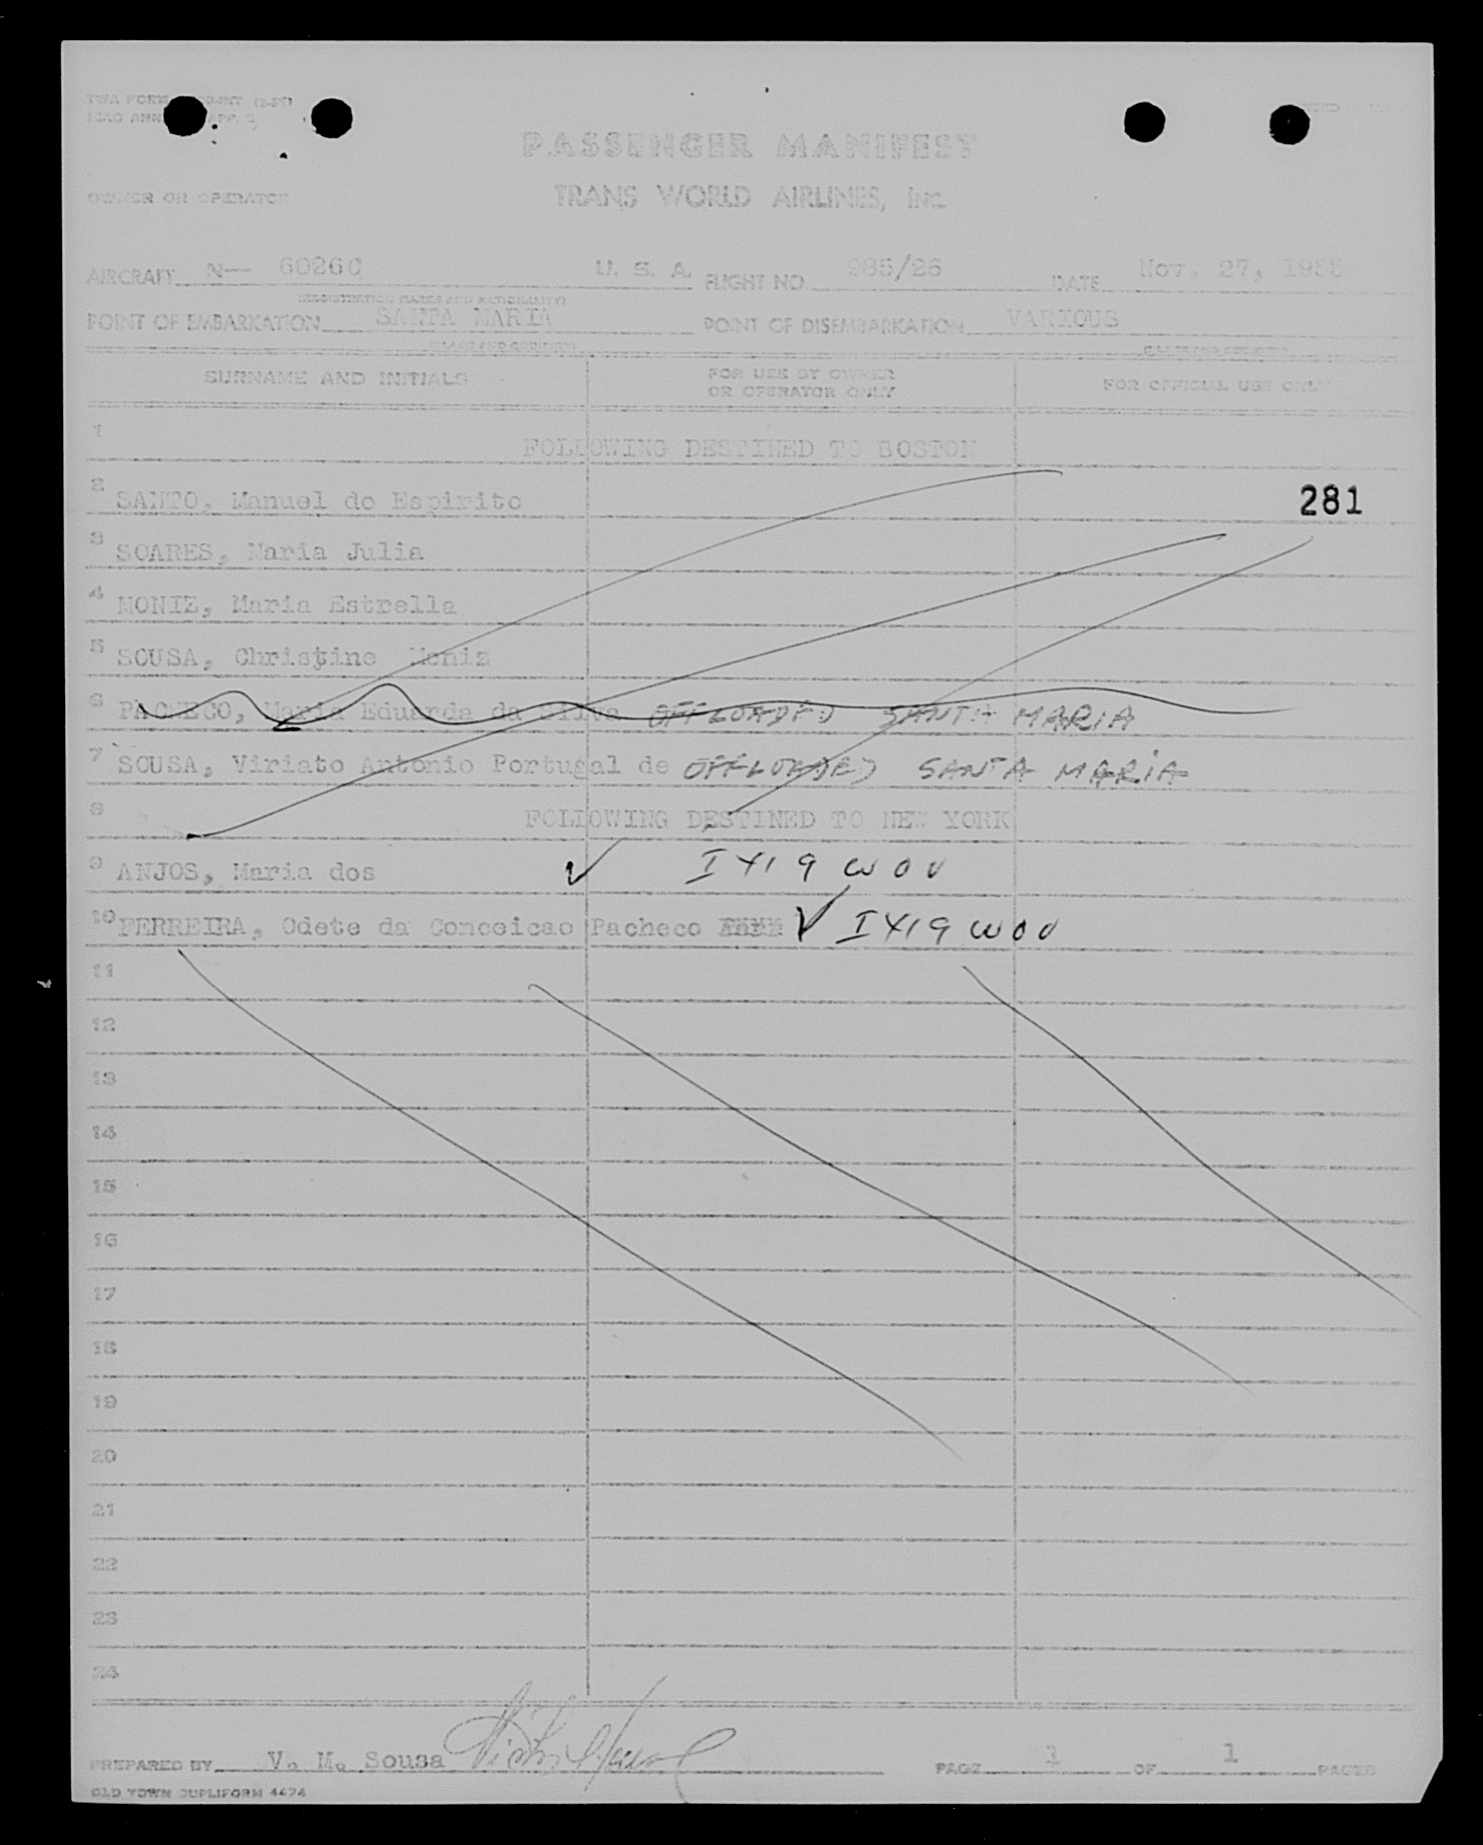 TWA FORM
PASSENGER MANIFEST
OWNER OR OPERATOR
TRANS WORLD AIRLINES, Inc.
AIRCRAFT N— 6026C U. S. A. FLIGHT NO. 985/26 DATE Nov. 27,
POINT OF EMBARKATION SANTA MARIA POINT OF DISEMBARKATION VARIOUS
SURNAME AND INITIALS FOR USE BY OWNER OR OPERATOR ONLY FOR OFFICIAL USE ONLY
1 FOLLOWING DESTINED TO BOSTON
2 SANTO, Manuel do Espirito 281
3 SOARES, Maria Julia
4 MONIZ, Maria Estrella
5 SOUSA, Christine Moniz
6 PACHECO, Maria Eduarda da Silva OFFLOADED SANTA MARIA
7 SOUSA, Viriato Antonio Portugal de OFFLOADED SANTA MARIA
8 FOLLOWING DESTINED TO NEW YORK
9 ANJOS, Maria dos ✓ IX19 WOV
10 FERREIRA, Odete da Conceicao Pacheco ✓ IX19 WOV
11
12
13
14
15
16
17
18
19
20
21
22
23
24
PREPARED BY V. M. Sousa PAGE 1 OF 1 PAGES
OLD TOWN DUPLIFORM 4474